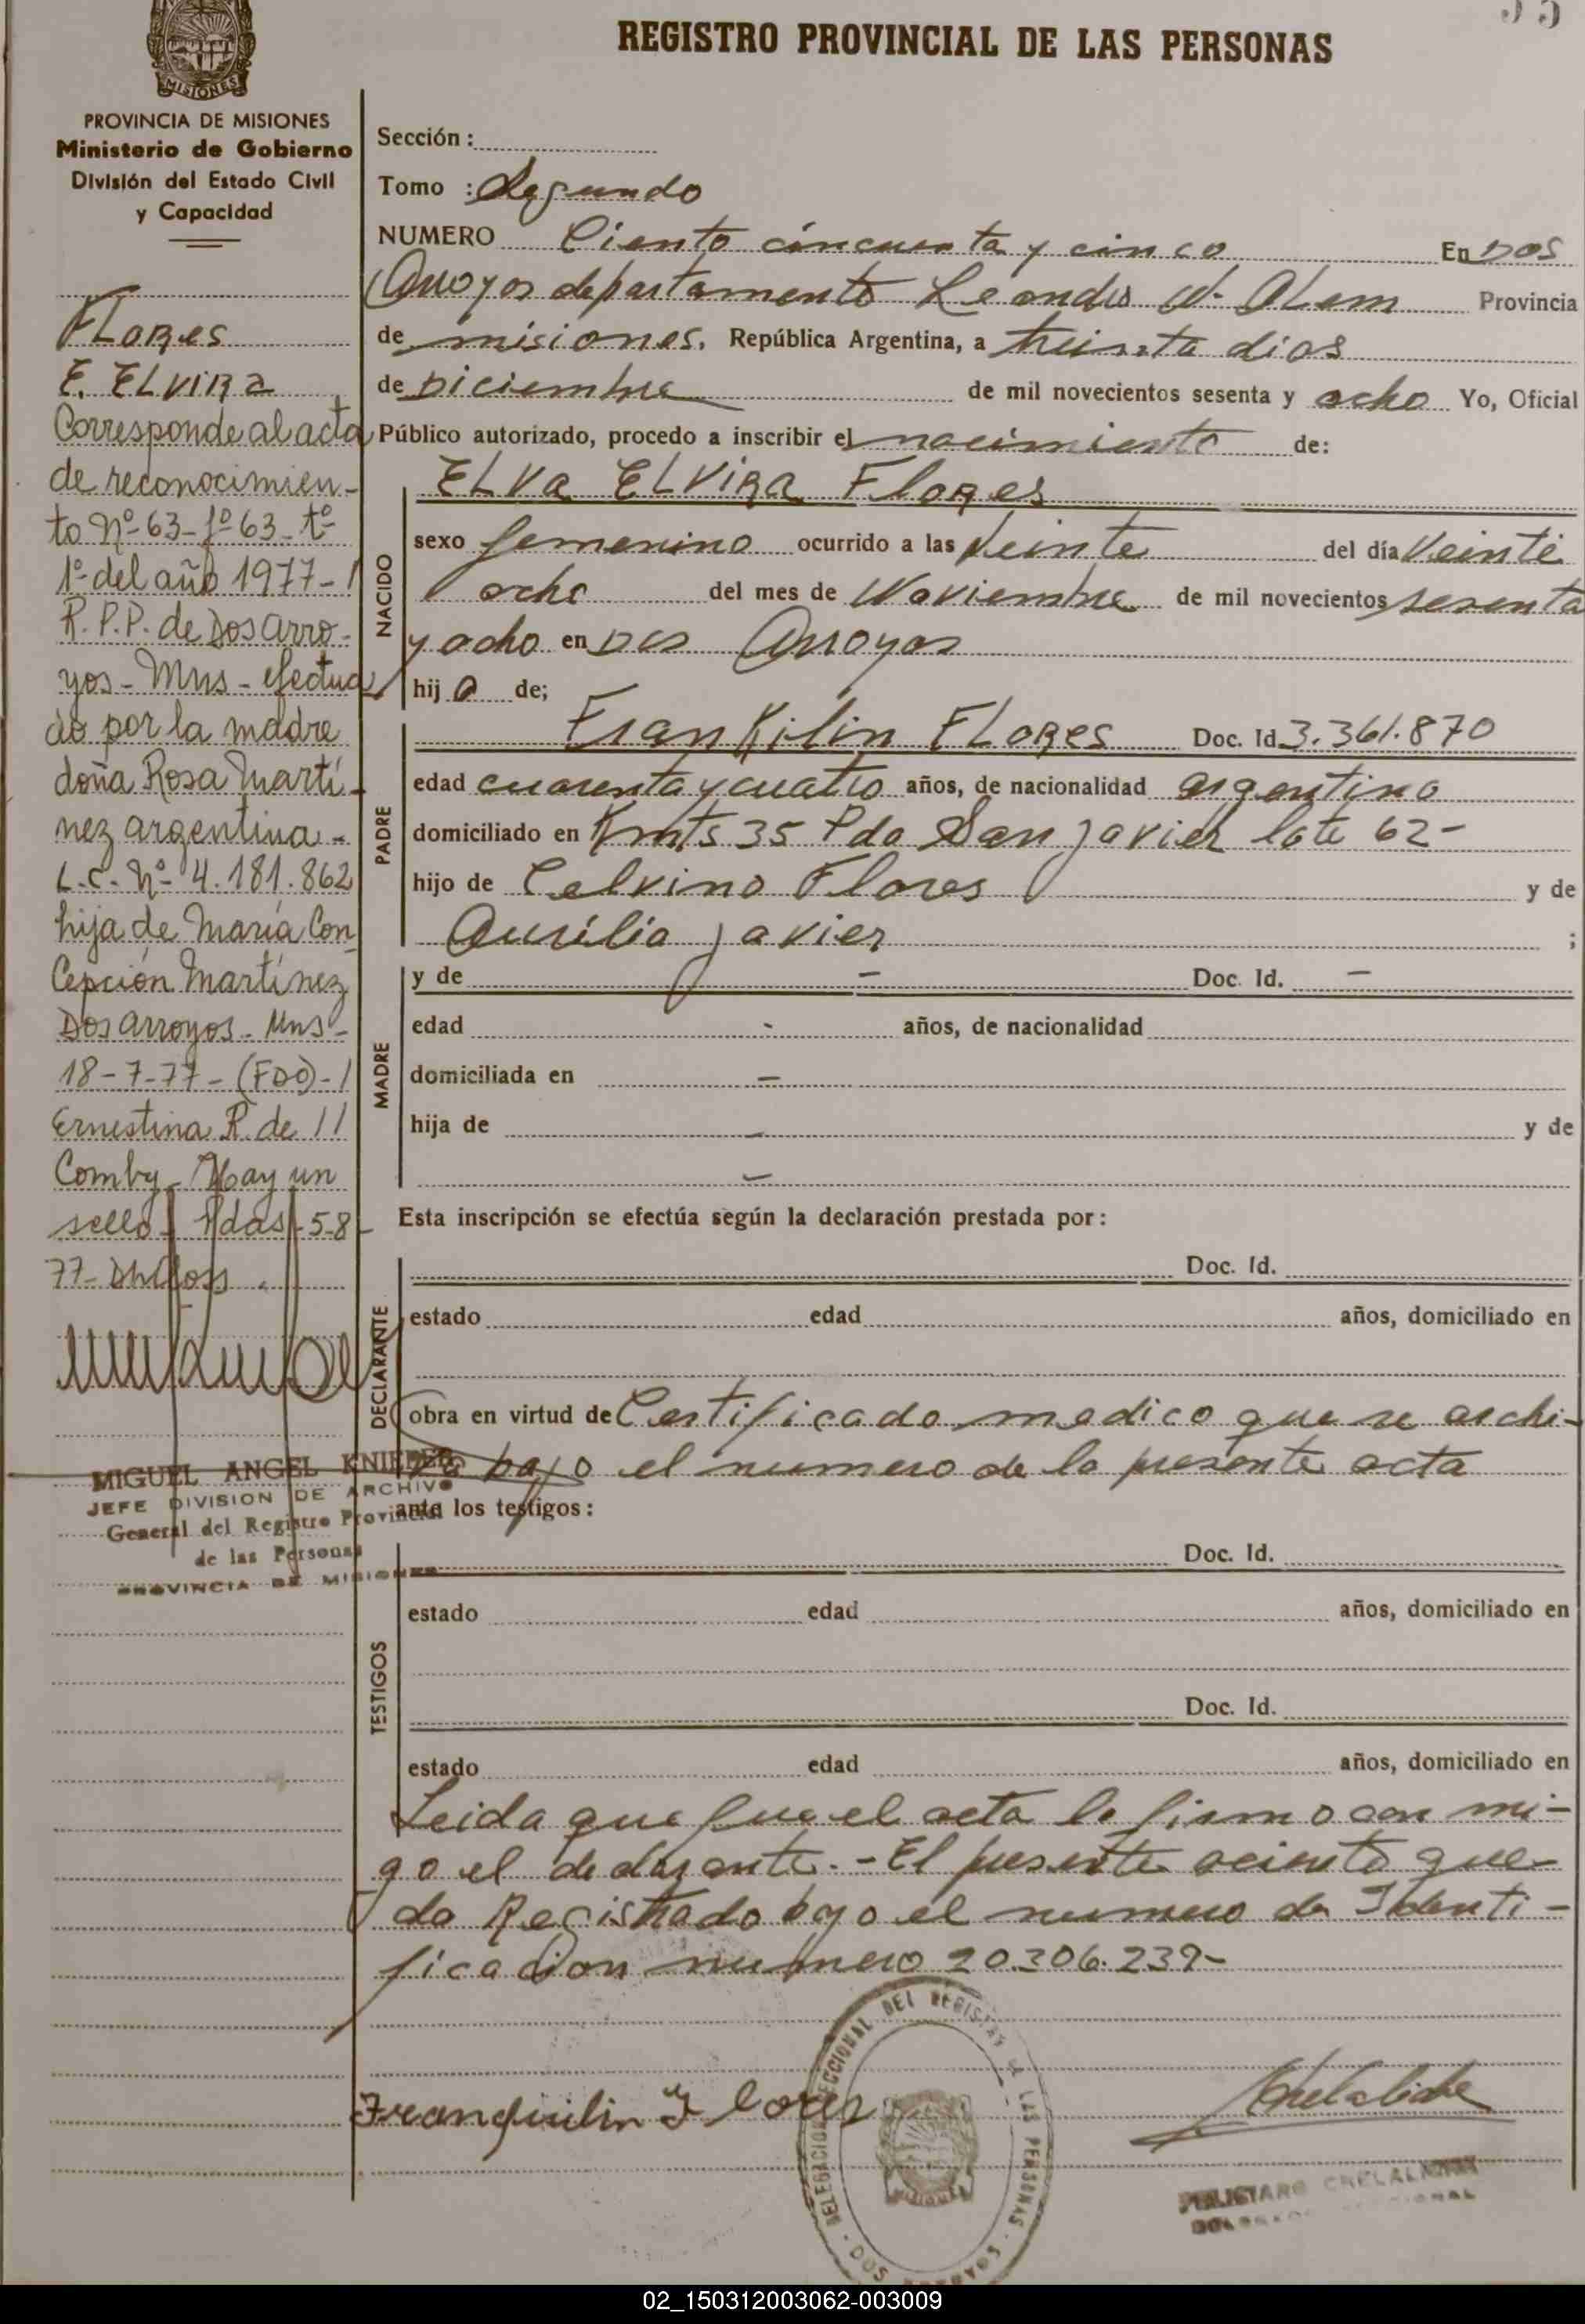 REGISTRO PROVINCIAL DE LAS PERSONAS
MISIONES
PROVINCIA DE MISIONES
Ministerio de Gobierno
División del Estado Civil
y Capacidad
FLORES
E. ELVIRA
Corresponde al acta
de reconocimien-
to Nº 63 - fº 63 - tº
1º del año 1977 - /
R.P.P. de Dos Arro-
yos - Mns - efectua
do por la madre
doña Rosa Martí-
nez argentina -
L.C. Nº 4.181.862
hija de María Con
cepción Martínez
Dos Arroyos - Mns -
18-7-77 - (FDO) - /
Ernestina R. de //
Comby - Hay un
sello - Pdas - 5-8-
77-
MIGUEL ANGEL KNIEPER
JEFE DIVISION DE ARCHIVO
General del Registro Provincial
de las Personas
PROVINCIA DE MISIONES
Sección :
Tomo : Segundo
NUMERO Ciento cincuenta y cinco En DOS
Arroyos departamento Leandro N. Alem Provincia
de misiones. República Argentina, a treinta dias
de Diciembre de mil novecientos sesenta y ocho Yo, Oficial
Público autorizado, procedo a inscribir el nacimiento de:
NACIDO
ELVA ELVIRA Flores
sexo femenino ocurrido a las Veinte del día Veinti
ocho del mes de Noviembre de mil novecientos sesenta
y ocho en Dos Arroyos
hij a de;
PADRE
FranKilin FLORES Doc. Id 3.361.870
edad cuarenta y cuatro años, de nacionalidad argentino
domiciliado en Kmts 35 Pda San Javier lote 62-
hijo de Celvino Flores y de
Aurilia Javier ;
MADRE
y de - Doc. Id. -
edad - años, de nacionalidad
domiciliada en -
hija de - y de
-
Esta inscripción se efectúa según la declaración prestada por:
DECLARANTE
Doc. Id.
estado edad años, domiciliado en
obra en virtud de Certificado medico que se archi-
va bajo el numero de la presente acta
ante los testigos:
TESTIGOS
Doc. Id.
estado edad años, domiciliado en
Doc. Id.
estado edad años, domiciliado en
Leida que fue el acta la firmo con mi-
go el declarante. - El presente aciento que-
da Registrado bajo el numero de Identi-
ficacion numero 20.306.239-
Franquilin Flores
DELEGACION SECCIONAL DEL REGISTRO DE LAS PERSONAS - DOS ARROYOS
MISIONES
02_150312003062-003009